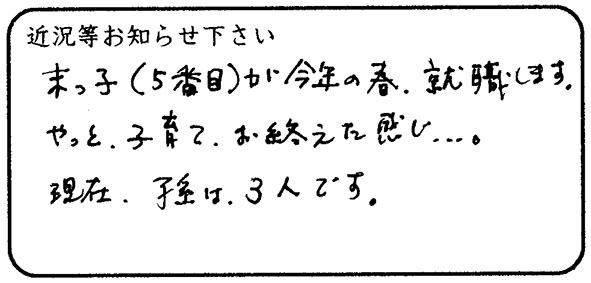 近況等お知らせ下さい
末っ子(5番目)が今年の春、就職します。
やっと、子育て、お終えた感じ…。
現在、孫は、3人です。